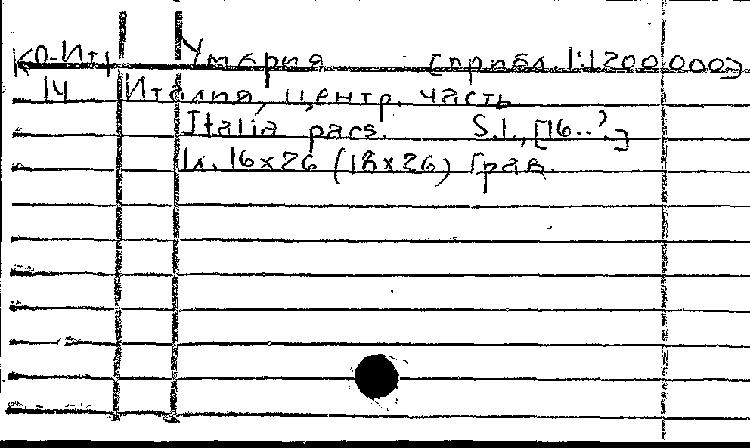 К0-Ит Умбрия [прибл. 1:1200 000]
14 Италия, центр. часть
Italia pars. S.l., [16..?]
1л. 16x26 (18x26) Грав.